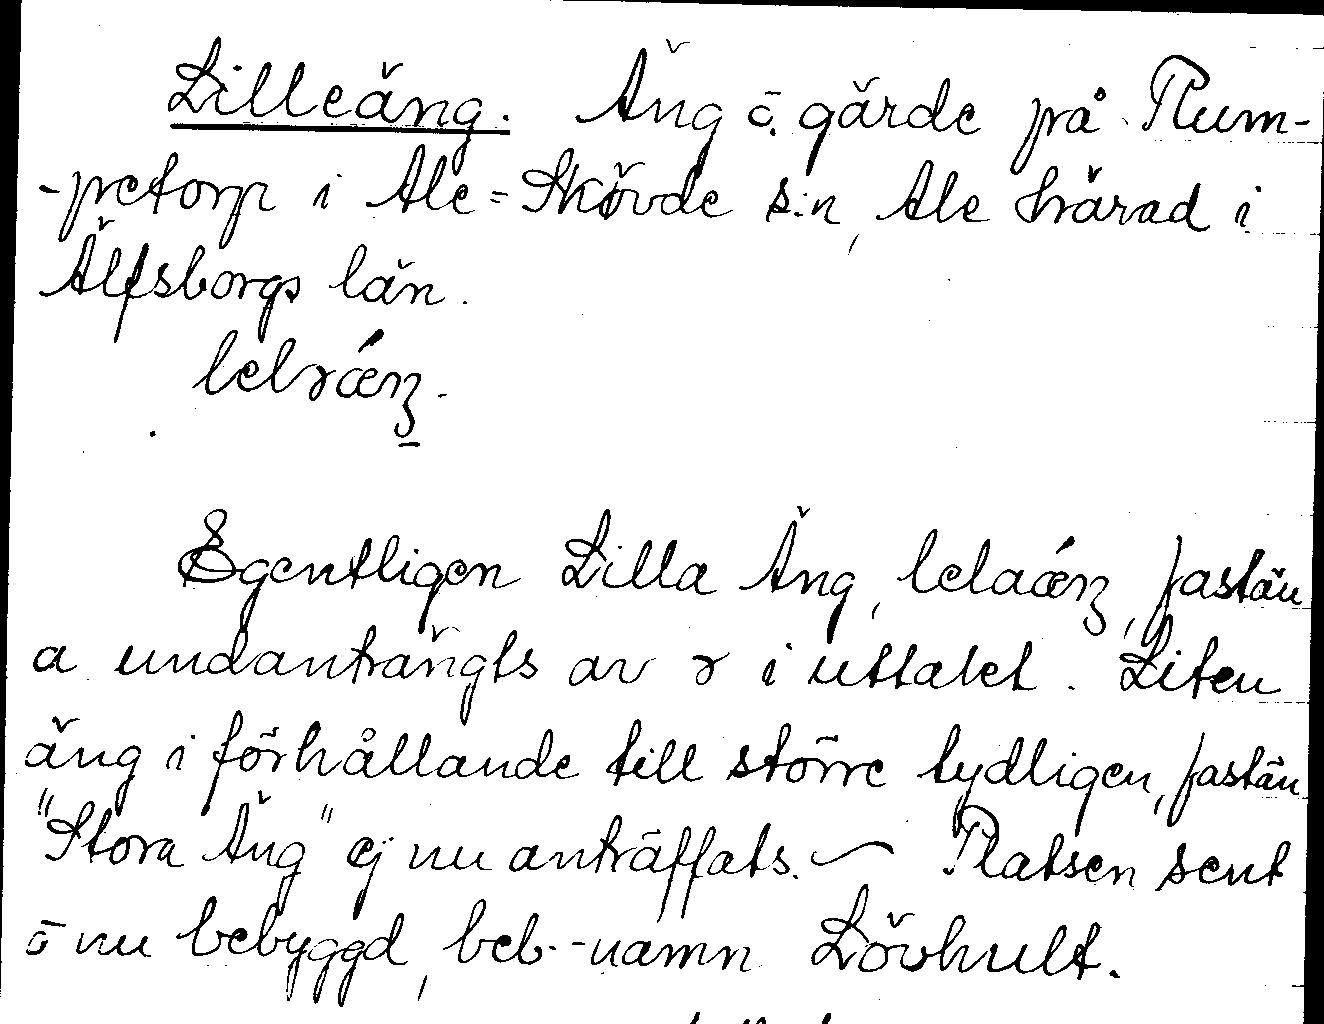 Lilleäng. Äng ō. gärde på Plum-
-petorp i Ale-Skövde s:n, Ale härad i
Älfsborgs län.
lelɤǽnz.
Egentligen Lilla Äng, lelaǽnz, fastän
a undanträngts av ɤ i uttalet. Liten
äng i förhållande till större tydligen, fastän
"Stora Äng" ej nu anträffats. — Platsen sent
ō nu bebyggd, beb.-namn Lövhult.